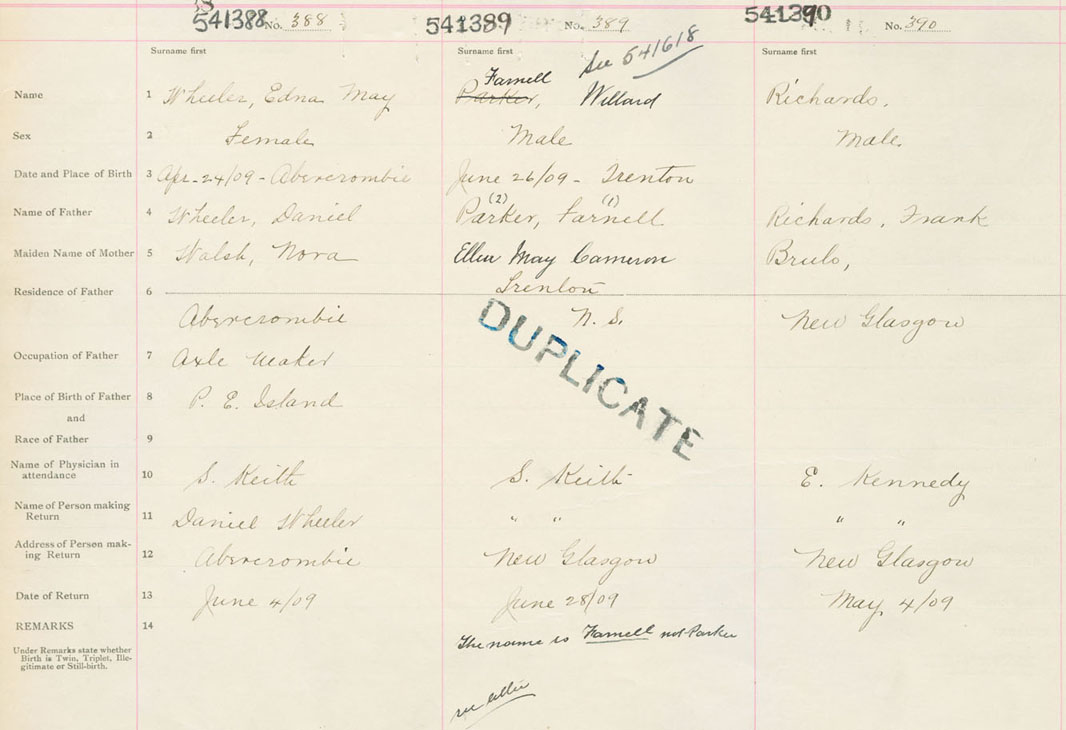 541388 No. 388 541389 No. 389 541390 No. 390
Surname first Surname first Surname first
See 541618
Farnell
Name 1 Wheeler, Edna May Parker, Willard Richards,
Sex 2 Female Male Male
Date and Place of Birth 3 Apr-24/09 - Abercrombie June 26/09 - Trenton
(2) (1)
Name of Father 4 Wheeler, Daniel Parker, Farnell Richards, Frank
Maiden Name of Mother 5 Walsh, Nora Ellen May Cameron Brulo,
Residence of Father 6 Trenton
Abercrombie N. S. New Glasgow
DUPLICATE
Occupation of Father 7 Axle Maker
Place of Birth of Father 8 P. E. Island
and
Race of Father 9
Name of Physician in
attendance 10 S. Keith S. Keith E. Kennedy
Name of Person making
Return 11 Daniel Wheeler " " " "
Address of Person mak-
ing Return 12 Abercrombie New Glasgow New Glasgow
Date of Return 13 June 4/09 June 28/09 May 4/09
REMARKS 14
The name is Farnell not Parker
Under Remarks state whether
Birth is Twin, Triplet, Ille-
gitimate or Still-birth.